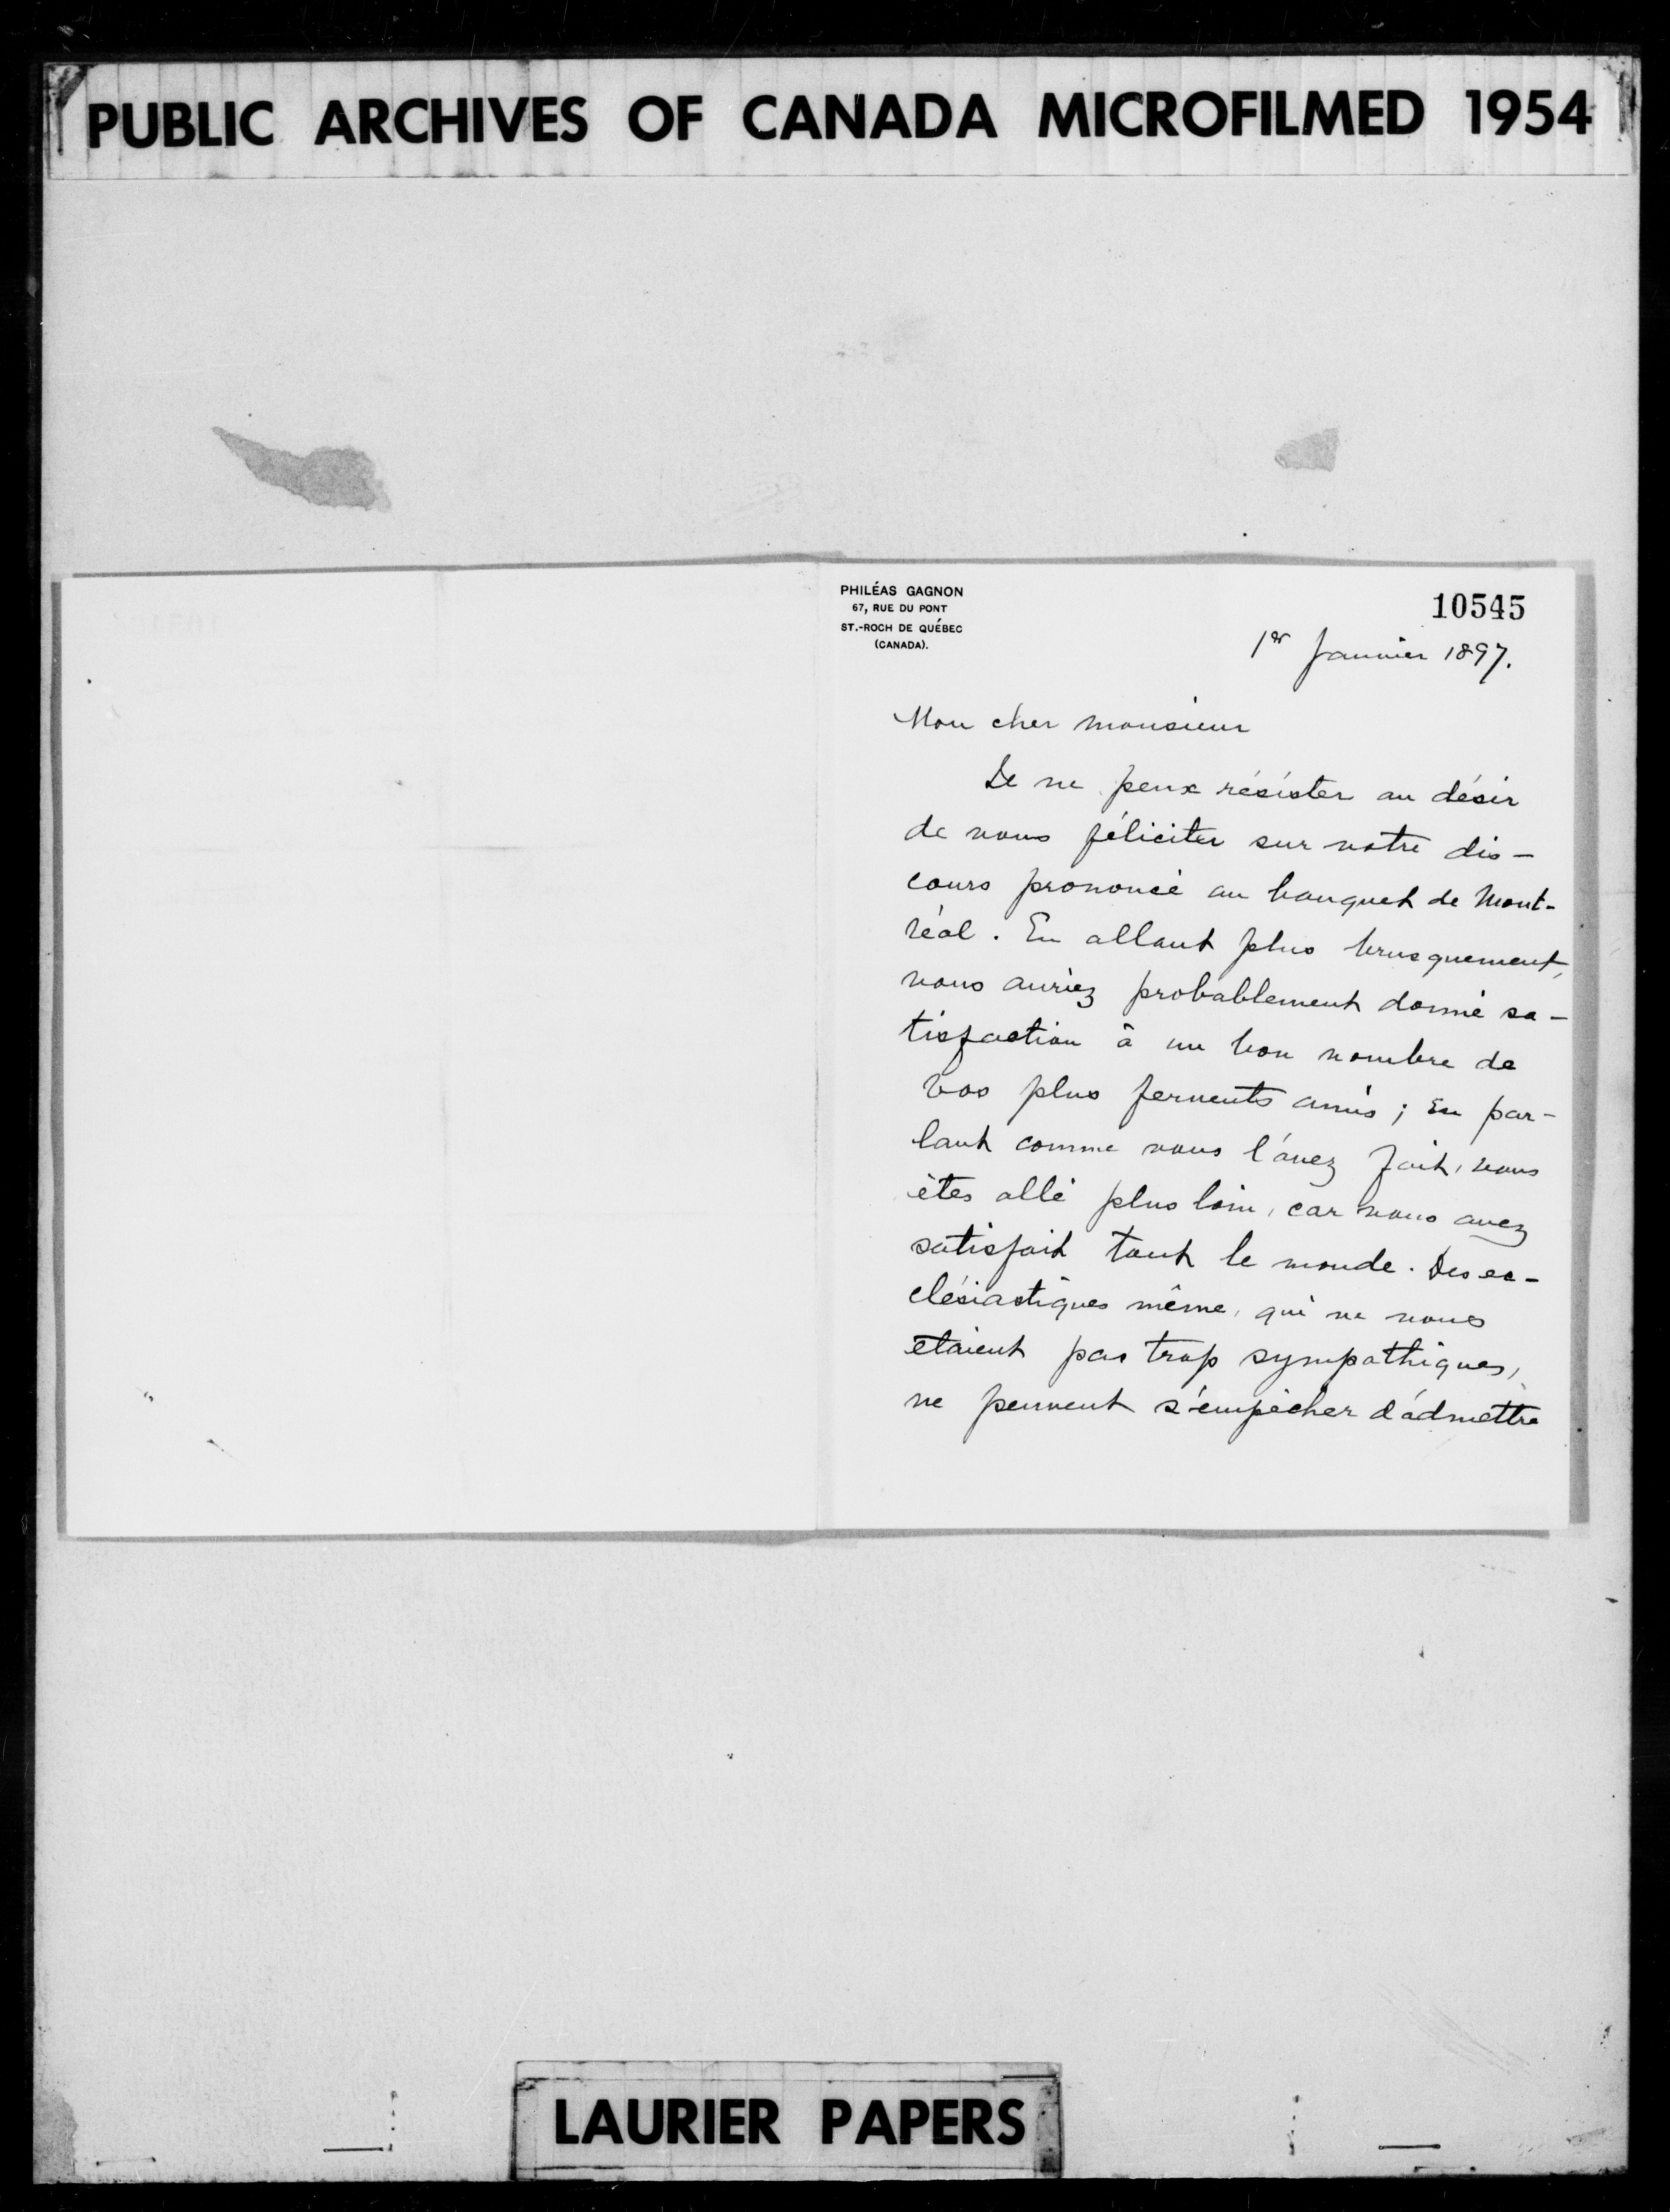 PUBLIC ARCHIVES OF CANADA MICROFILMED 1954
PHILÉAS GAGNON
67, RUE DU PONT
ST.-ROCH DE QUÉBEC
(CANADA).
10545
1er Janvier 1897.
Mon cher monsieur
Je ne peux résister au désir
de vous féliciter sur votre dis-
cours prononcé au banquet de Mont-
réal. En allant plus brusquement,
vous auriez probablement donné sa-
tisfaction à un bon nombre de
vos plus fervents amis; En par-
lant comme vous l'avez fait, vous
êtes allé plus loin, car vous avez
satisfait tout le monde. Des ec-
clésiastiques même, qui ne vous
étaient pas trop sympathiques,
ne peuvent s'empêcher d'admettre
LAURIER PAPERS